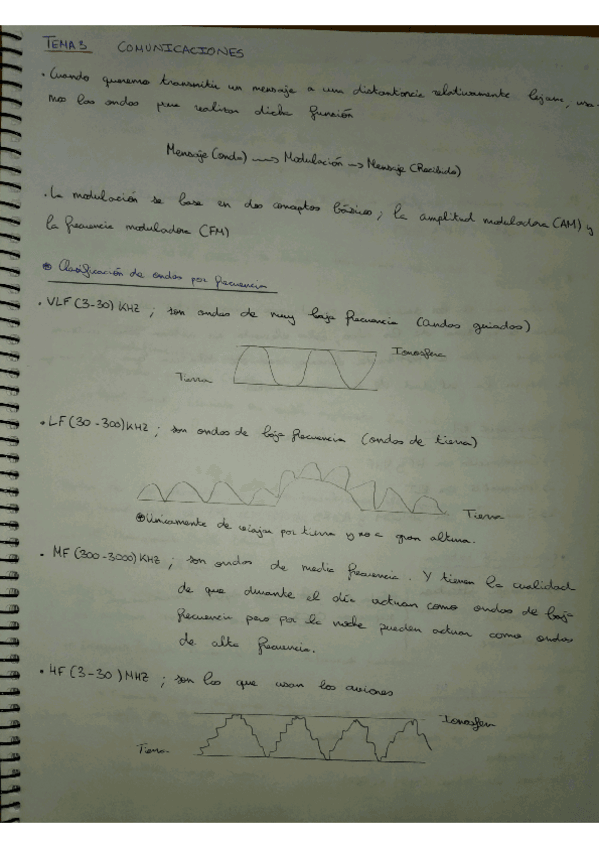 TEMA 3 COMUNICACIONES
• Cuando queremos transmitir un mensaje a una distantancia relativamente lejana, usa-
mos las ondas para realizar dicha función
Mensaje (onda) → Modulación → Mensaje (Recibido)
• La modulación se basa en dos conceptos básicos; la amplitud moduladora (AM) y
la frecuencia moduladora (FM)
⊛ Clasificación de ondas por frecuencia
• VLF (3-30) KHZ ; son ondas de muy baja frecuencia (ondas guiadas)
Ionosfera
Tierra
• LF (30-300) KHZ ; son ondas de baja frecuencia (ondas de tierra)
Tierra
⊛ Únicamente de viajar por tierra y no a gran altura.
• MF (300-3000) KHZ ; son ondas de media frecuencia. Y tienen la cualidad
de que durante el día actuan como ondas de baja
frecuencia pero por la noche pueden actuar como ondas
de alta frecuencia.
• HF (3-30) MHZ ; son las que usan los aviones
Ionosfera
Tierra